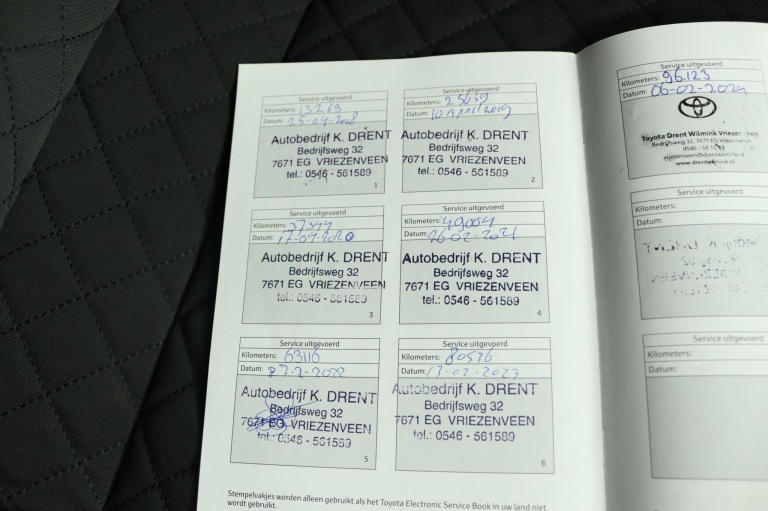 Service uitgevoerd
Kilometers: 13269
Datum: 25-04-2018
Autobedrijf K. DRENT
Bedrijfsweg 32
7671 EG VRIEZENVEEN
tel.: 0546 - 561589
1
Service uitgevoerd
Kilometers: 25639
Datum: 10 April 2019
Autobedrijf K. DRENT
Bedrijfsweg 32
7671 EG VRIEZENVEEN
tel.: 0546 - 561589
2
Service uitgevoerd
Kilometers: 37344
Datum: 17-04-2020
Autobedrijf K. DRENT
Bedrijfsweg 32
7671 EG VRIEZENVEEN
tel.: 0546 - 561589
3
Service uitgevoerd
Kilometers: 49064
Datum: 26-02-2021
Autobedrijf K. DRENT
Bedrijfsweg 32
7671 EG VRIEZENVEEN
tel.: 0546 - 561589
4
Service uitgevoerd
Kilometers: 63116
Datum: 2-2022
Autobedrijf K. DRENT
Bedrijfsweg 32
7671 EG VRIEZENVEEN
tel.: 0546 - 561589
5
Service uitgevoerd
Kilometers: 80576
Datum: 13-02-2023
Autobedrijf K. DRENT
Bedrijfsweg 32
7671 EG VRIEZENVEEN
tel.: 0546 - 561589
6
Stempelvakjes worden alleen gebruikt als het Toyota Electronic Service Book in uw land niet
wordt gebruikt.
Service uitgevoerd
Kilometers: 96.123
Datum: 06-02-2024
Toyota Drent Wilmink Vriezen
Bedrijfsweg 32, 7671 EG Vriezenveen
0546 - 56 15
vriezenveen@drentwilmink.nl
www.drentwilmink.nl
Service uitgevoerd
Kilometers:
Datum:
Service uitgevoerd
Kilometers:
Datum: